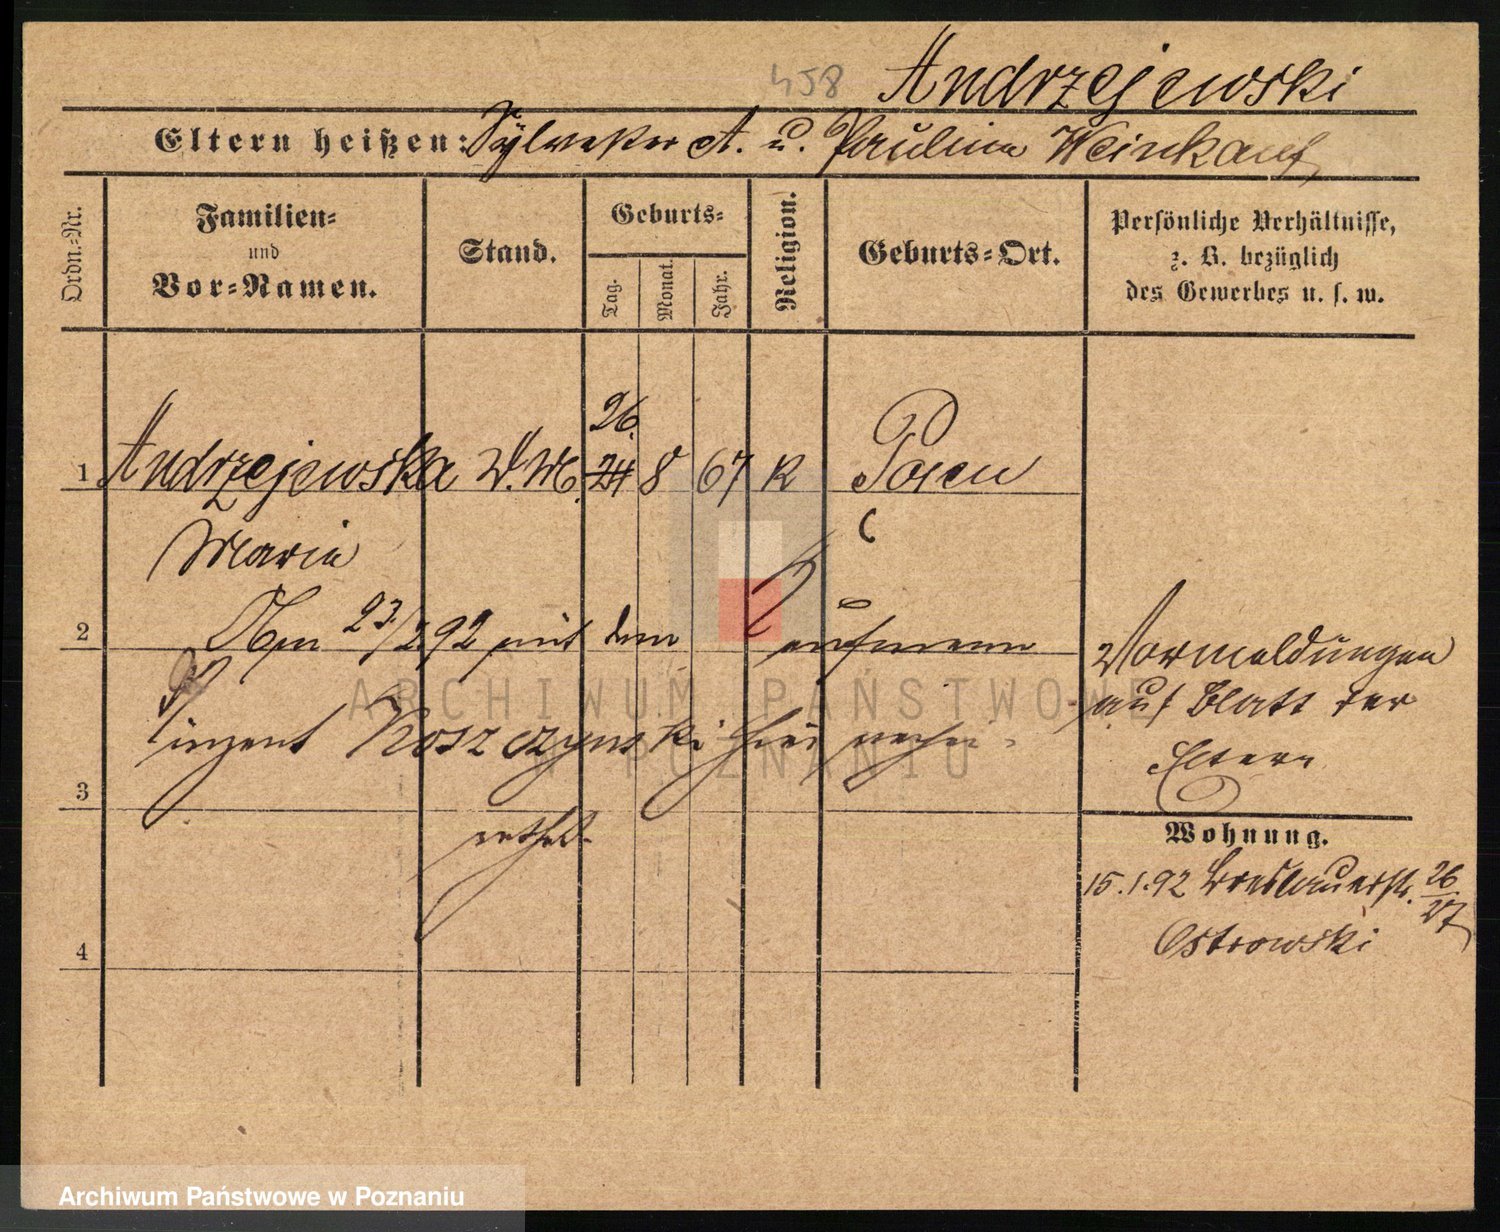 458 Andrzejewski
Eltern heißen: Sylvester A. u. Paulina Weinkauf
Ordn.-Nr.
Familien-
und
Vor-Namen.
Stand.
Geburts-
Tag.
Monat.
Jahr.
Religion.
Geburts-Ort.
Persönliche Verhältnisse,
z. B. bezüglich
des Gewerbes u. s. w.
26.
1 Andrzejewska 24 8 67 k Posen
Maria
2 Am 23/2 92 mit dem Kaufmann
Vinzent Koszczynski hier verhei-
3 rathet.
4
Vormeldungen
auf Blatt der
Eltern
Wohnung.
15.1.92 Breslauerstr. 26/27
Ostrowski
ARCHIWUM PAŃSTWOWE
W POZNANIU
Archiwum Państwowe w Poznaniu